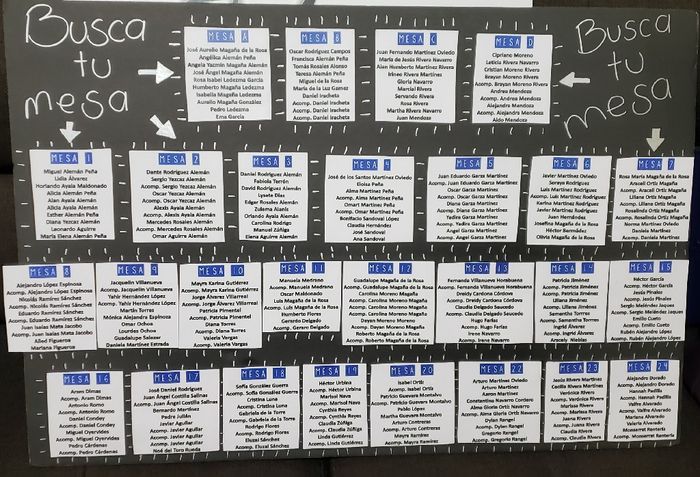 Busca
tu
mesa
Busca
tu
mesa
MESA A
José Aurelio Magaña de la Rosa
Angélica Alemán Peña
Angela Yazmin Magaña Alemán
José Ángel Magaña Alemán
Rosa Isabel Ledezma García
Humberto Magaña Ledezma
Isabella Magaña Ledezma
Aurelio Magaña González
Pedro Ledezma
Ema García
MESA B
Oscar Rodríguez Campos
Francisca Alemán Peña
Tomás Rosales Alonso
Teresa Alemán Peña
Miguel de la Rosa
María de la Luz Gamez
Daniel Iracheta
Acomp. Daniel Iracheta
Acomp. Daniel Iracheta
Acomp. Daniel Iracheta
MESA C
Juan Fernando Martínez Oviedo
María de Jesús Rivera Navarro
Alan Humberto Martínez Rivera
Irineo Rivera Martínez
Gloria Navarro
Marcial Rivera
Servando Rivera
Rosa Rivera
Martha Rivera Navarro
Juan Mendoza
MESA D
Cipriano Moreno
Leticia Rivera Navarro
Cristian Moreno Rivera
Brayan Moreno Rivera
Acomp. Brayan Moreno Rivera
Andrea Mendoza
Acomp. Andrea Mendoza
Alejandra Mendoza
Acomp. Alejandra Mendoza
Aldo Mendoza
MESA 1
Miguel Alemán Peña
Lidia Álvarez
Horlando Ayala Maldonado
Alicia Alemán Peña
Alan Ayala Alemán
Alicia Ayala Alemán
Esther Alemán Peña
Diana Yescaz
Leonardo Aguirre
María Elena Alemán Peña
MESA 2
Dante Rodríguez Alemán
Sergio Yezcaz Alemán
Acomp. Sergio Yezcaz Alemán
Oscar Yezcaz Alemán
Acomp. Oscar Yezcaz Alemán
Alexis Ayala Alemán
Acomp. Alexis Ayala Alemán
Mercedes Rosales Alemán
Acomp. Mercedes Rosales Alemán
Omar Aguirre Alemán
MESA 3
Daniel Rodríguez Alemán
Fabiola Terrón
David Rodríguez Alemán
Lysete Días
Edgar Rosales Alemán
Zulema Alanís
Orlando Ayala Alemán
Carolina Rodrigo
Manuel Zúñiga
Elena Aguirre Alemán
MESA 4
José de los Santos Martínez Oviedo
Eloisa Peña
Alma Martínez Peña
Acomp. Alma Martínez Peña
Omart Martínez Peña
Acomp. Omar Martínez Peña
Bonifacio Sandoval López
Claudia Hernández
José Sandoval
Ana Sandoval
MESA 5
Juan Eduardo Garza Martínez
Acomp. Juan Eduardo Garza Martínez
Oscar Garza Martínez
Acomp. Oscar Garza Martínez
Diana Garza Martínez
Acomp. Diana Garza Martínez
Yadira Garza Martínez
Acomp. Yadira Garza Martínez
Angel Garza Martínez
Acomp. Angel Garza Martínez
MESA 6
Javier Martínez Oviedo
Soraya Rodríguez
Luis Martínez Rodríguez
Acomp. Luis Martínez Rodríguez
Karina Martínez Rodríguez
Javier Martínez Rodríguez
Juana Rodríguez
José Magaña de la Rosa
Héctor Bermúdez
Olivia Magaña de la Rosa
MESA 7
Rosa María Magaña de la Rosa
Araceli Ortiz Magaña
Acomp. Araceli Ortiz Magaña
Liliana Ortiz Magaña
Acomp. Liliana Ortiz Magaña
Rosalinda Ortiz Magaña
Acomp. Rosalinda Ortiz Magaña
Norma Martínez Oviedo
Daniela Martínez
Acomp. Daniela Martínez
MESA 8
Alejandro López Espinosa
Acomp. Alejandro López Espinosa
Nicolás Ramírez Sánchez
Acomp. Nicolás Ramírez Sánchez
Eduardo Ramírez Sánchez
Acomp. Eduardo Ramírez Sánchez
Juan Isaías Mata Jacobo
Acomp. Juan Isaías Mata Jacobo
Alled Figueroa
Mariana Figueroa
MESA 9
Jacquelin Villanueva
Acomp. Jacquelin Villanueva
Yahir Hernández López
Acomp. Yahir Hernández López
Martin Torres
Mónica Alejandra Espinosa
Omar Ochoa
Lourdes Ochoa
Guadalupe Salazar
Daniela Martínez Estrada
MESA 10
Mayra Karina Gutiérrez
Acomp. Mayra Karina Gutiérrez
Jorge Álvarez Villarreal
Acomp. Jorge Álvarez Villarreal
Patricia Pimentel
Acomp. Patricia Pimentel
Diana Torres
Acomp. Diana Torres
Valeria Vargas
Acomp. Valeria Vargas
MESA 11
Manuela Medrano
Acomp. Manuela Medrano
Oscar Maldonado
Luis Magaña de la Rosa
Acomp. Luis Magaña de la Rosa
Humberto Flores
Gerardo Delgado
Acomp. Gerardo Delgado
MESA 12
Guadalupe Magaña de la Rosa
Acomp. Guadalupe Magaña de la Rosa
Carolina Moreno Magaña
Acomp. Carolina Moreno Magaña
Acomp. Carolina Moreno Magaña
Dayan Moreno Magaña
Acomp. Dayan Moreno Magaña
Roberto Magaña de la Rosa
Acomp. Roberto Magaña de la Rosa
MESA 13
Fernanda Villanueva Horabuena
Acomp. Fernanda Villanueva Horabuena
Dreidy Cardona Ordoñez
Acomp. Dreidy Cardona Ordoñez
Claudia Delgado Saucedo
Acomp. Claudia Delgado Saucedo
Hugo Farías
Acomp. Hugo Farías
Irene Navarro
Acomp. Irene Navarro
MESA 14
Patricia Jiménez
Acomp. Patricia Jiménez
Liliana Jiménez
Acomp. Liliana Jiménez
Samantha Torres
Acomp. Samantha Torres
Ingrid Álvares
Acomp. Ingrid Álvares
Aracely Nieblas
MESA 15
Héctor García
Acomp. Héctor García
Jesús Pinales
Acomp. Jesús Pinales
Sergio Meléndez Jaques
Acomp. Sergio Meléndez Jaques
Emilio Cueto
Acomp. Emilio Cueto
Rubén Alejandro López
Acomp. Rubén Alejandro López
MESA 16
Aram Dimas
Acomp. Aram Dimas
Antonio Romo
Acomp. Antonio Romo
Daniel Condey
Acomp. Daniel Condey
Miguel Oyervides
Acomp. Miguel Oyervides
Pedro Cárdenas
Acomp. Pedro Cárdenas
MESA 17
José Daniel Rodríguez
Juan Ángel Costilla Salinas
Acomp. Juan Ángel Costilla Salinas
Bernardo Martínez
Pedro Julián
Javier Aguilar
Acomp. Javier Aguilar
Acomp. Javier Aguilar
Acomp. Javier Aguilar
Noé del Toro Rueda
MESA 18
Sofía González Guerra
Acomp. Sofía González Guerra
Cristina Luna
Acomp. Cristina Luna
Gabriela de la Torre
Acomp. Gabriela de la Torre
Rodrigo Flores
Acomp. Rodrigo Flores
Eluzai Sánchez
Acomp. Eluzai Sánchez
MESA 19
Héctor Urbina
Acomp. Héctor Urbina
Marisol Nava
Acomp. Marisol Nava
Cynthia Reyes
Acomp. Cynthia Reyes
Claudia Zúñiga
Acomp. Claudia Zúñiga
Linda Gutiérrez
Acomp. Linda Gutiérrez
MESA 20
Isabel Ortiz
Acomp. Isabel Ortiz
Patricio Guevara Montalvo
Acomp. Patricio Guevara Montalvo
Pablo López
Martha Guevara Montalvo
Arturo Contreras
Acomp. Arturo Contreras
Mayra Ramírez
Acomp. Mayra Ramírez
MESA 22
Arturo Martínez Oviedo
Arturo Martínez
Aaron Martínez
Constantina Navarro Cordero
Alma Gloria Ortiz Navarro
Acomp. Alma Gloria Ortiz Navarro
Dylan Rangel
Acomp. Dylan Rangel
Gregorio Rangel
Acomp. Gregorio Rangel
MESA 23
Jesús Rivera Martínez
Cecilia Rivera Martínez
Verónica Rivera
Acomp. Verónica Rivera
Marisa Rivera
Acomp. Marisea Rivera
Juana Rivera
Acomp. Juana Rivera
Claudia Rivera
Josefina Rivera
Acomp. Claudia Rivera
MESA 24
Alejandro Dorado
Acomp. Alejandro Dorado
Hannah Padilla
Acomp. Hannah Padilla
Valfre Alvarado
Acomp. Valfre Alvarado
Mariana Alvarado
Valeria Alvarado
Montserrat Rentería
Acomp. Monserrat Rentería